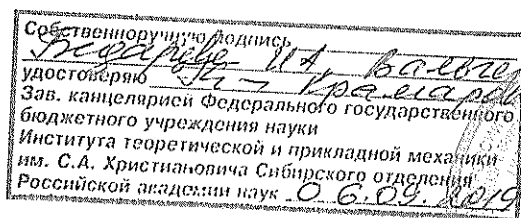 Собственноручную подпись
И.А.
удостоверяю
Зав. канцелярией Федерального государственного
бюджетного учреждения науки
Института теоретической и прикладной механики
им. С.А. Христиановича Сибирского отделения
Российской академии наук 06.09.2019